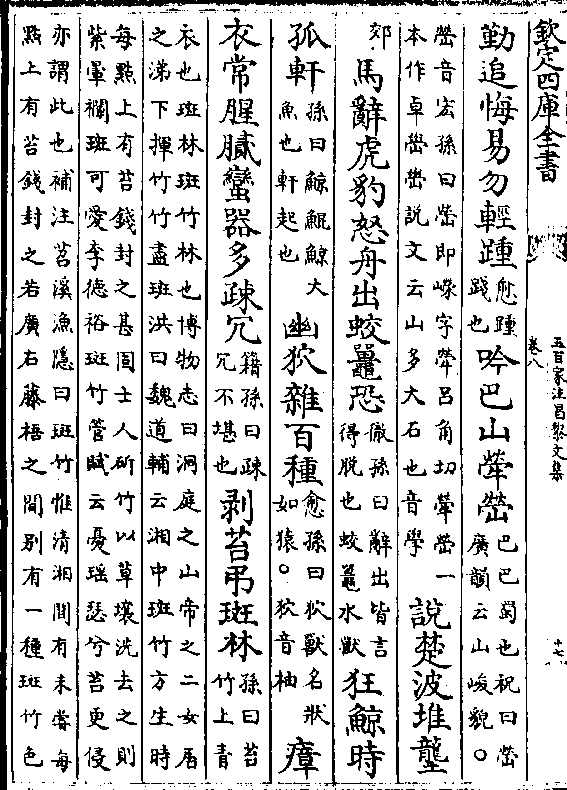 欽定四庫全書
五百家注昌黎文集
卷八
十七
勤追悔易勿輕踵
愈踵
踐也
吟巴山犖嶨
巴巴蜀也祝曰嶨
廣韻云山峻貌○
嶨音宏孫曰嶨即嶸字犖呂角切犖嶨一
本作卓嶨嶨說文云山多大石也音學
說楚波堆壟
郊
馬辭虎豹怒舟出蛟鼉恐
儆孫曰辭出皆言
得脫也蛟鼉水獸
狂鯨時
孤軒
孫曰鯨鯤鯨大
魚也軒起也
幽狖雜百種
愈孫曰狖獸名狀
如猿○狖音柚
瘴
衣常腥膩蠻器多疎冗
籍孫曰疎
冗不堪也
剥苔弔斑林
孫曰苔
竹上青
衣也斑林斑竹林也博物志曰洞庭之山帝之二女居
之涕下揮竹竹盡斑洪曰魏道輔云湘中斑竹方生時
每點上有苔錢封之甚固士人斫竹以草壤洗去之則
紫暈襴斑可愛李德裕斑竹管賦云憂瑶瑟兮苔更侵
亦謂此也補注苕溪漁隱曰斑竹惟清湘間有未嘗每
點上有苔錢封之若廣右藤梧之間别有一種斑竹色